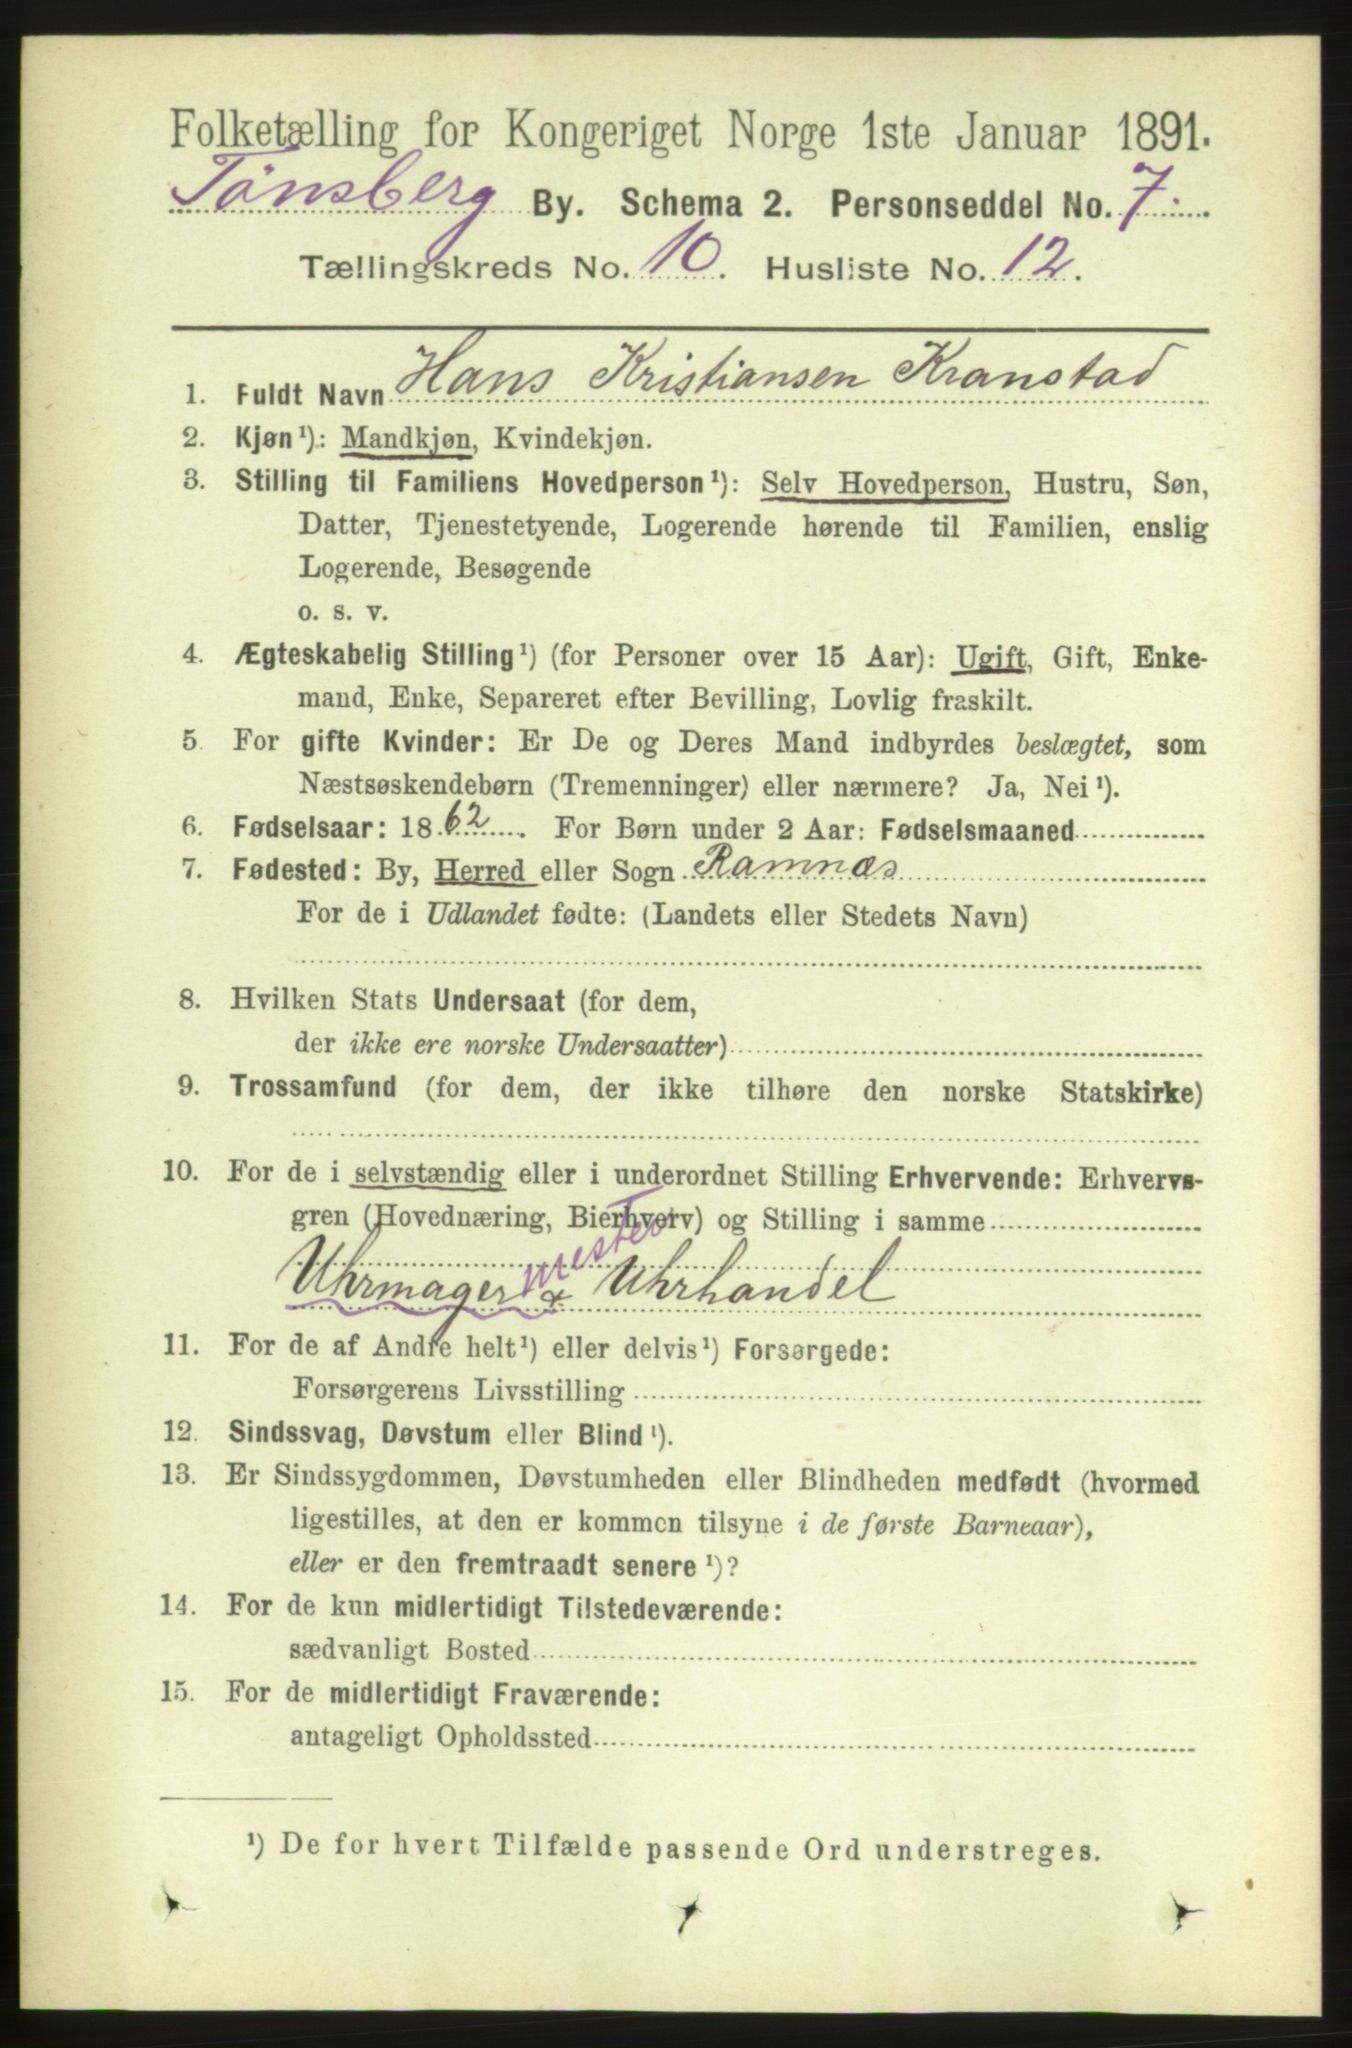 Folketælling for Kongeriget Norge 1ste Januar 1891.
Tönsberg By. Schema 2. Personseddel No. 7.
Tællingskreds No. 10. Husliste No. 12.
1. Fuldt Navn Hans Kristiansen Kranstad
2. Kjøn ¹): Mandkjøn, Kvindekjøn.
3. Stilling til Familiens Hovedperson ¹): Selv Hovedperson, Hustru, Søn,
Datter, Tjenestetyende, Logerende hørende til Familien, enslig
Logerende, Besøgende
o. s. v.
4. Ægteskabelig Stilling ¹) (for Personer over 15 Aar): Ugift, Gift, Enke-
mand, Enke, Separeret efter Bevilling, Lovlig fraskilt.
5. For gifte Kvinder: Er De og Deres Mand indbyrdes beslægtet, som
Næstsøskendebørn (Tremenninger) eller nærmere? Ja, Nei ¹).
6. Fødselsaar: 1862. For Børn under 2 Aar: Fødselsmaaned
7. Fødested: By, Herred eller Sogn Ramnæs
For de i Udlandet fødte: (Landets eller Stedets Navn)
8. Hvilken Stats Undersaat (for dem,
der ikke ere norske Undersaatter)
9. Trossamfund (for dem, der ikke tilhøre den norske Statskirke)
10. For de i selvstændig eller i underordnet Stilling Erhvervende: Erhvervs-
gren (Hovednæring, Bierhverv) og Stilling i samme
mester
Uhrmager & Uhrhandel
11. For de af Andre helt ¹) eller delvis ¹) Forsørgede:
Forsørgerens Livsstilling
12. Sindssvag, Døvstum eller Blind ¹).
13. Er Sindssygdommen, Døvstumheden eller Blindheden medfødt (hvormed
ligestilles, at den er kommen tilsyne i de første Barneaar),
eller er den fremtraadt senere ¹)?
14. For de kun midlertidigt Tilstedeværende:
sædvanligt Bosted
15. For de midlertidigt Fraværende:
antageligt Opholdssted
¹) De for hvert Tilfælde passende Ord understreges.